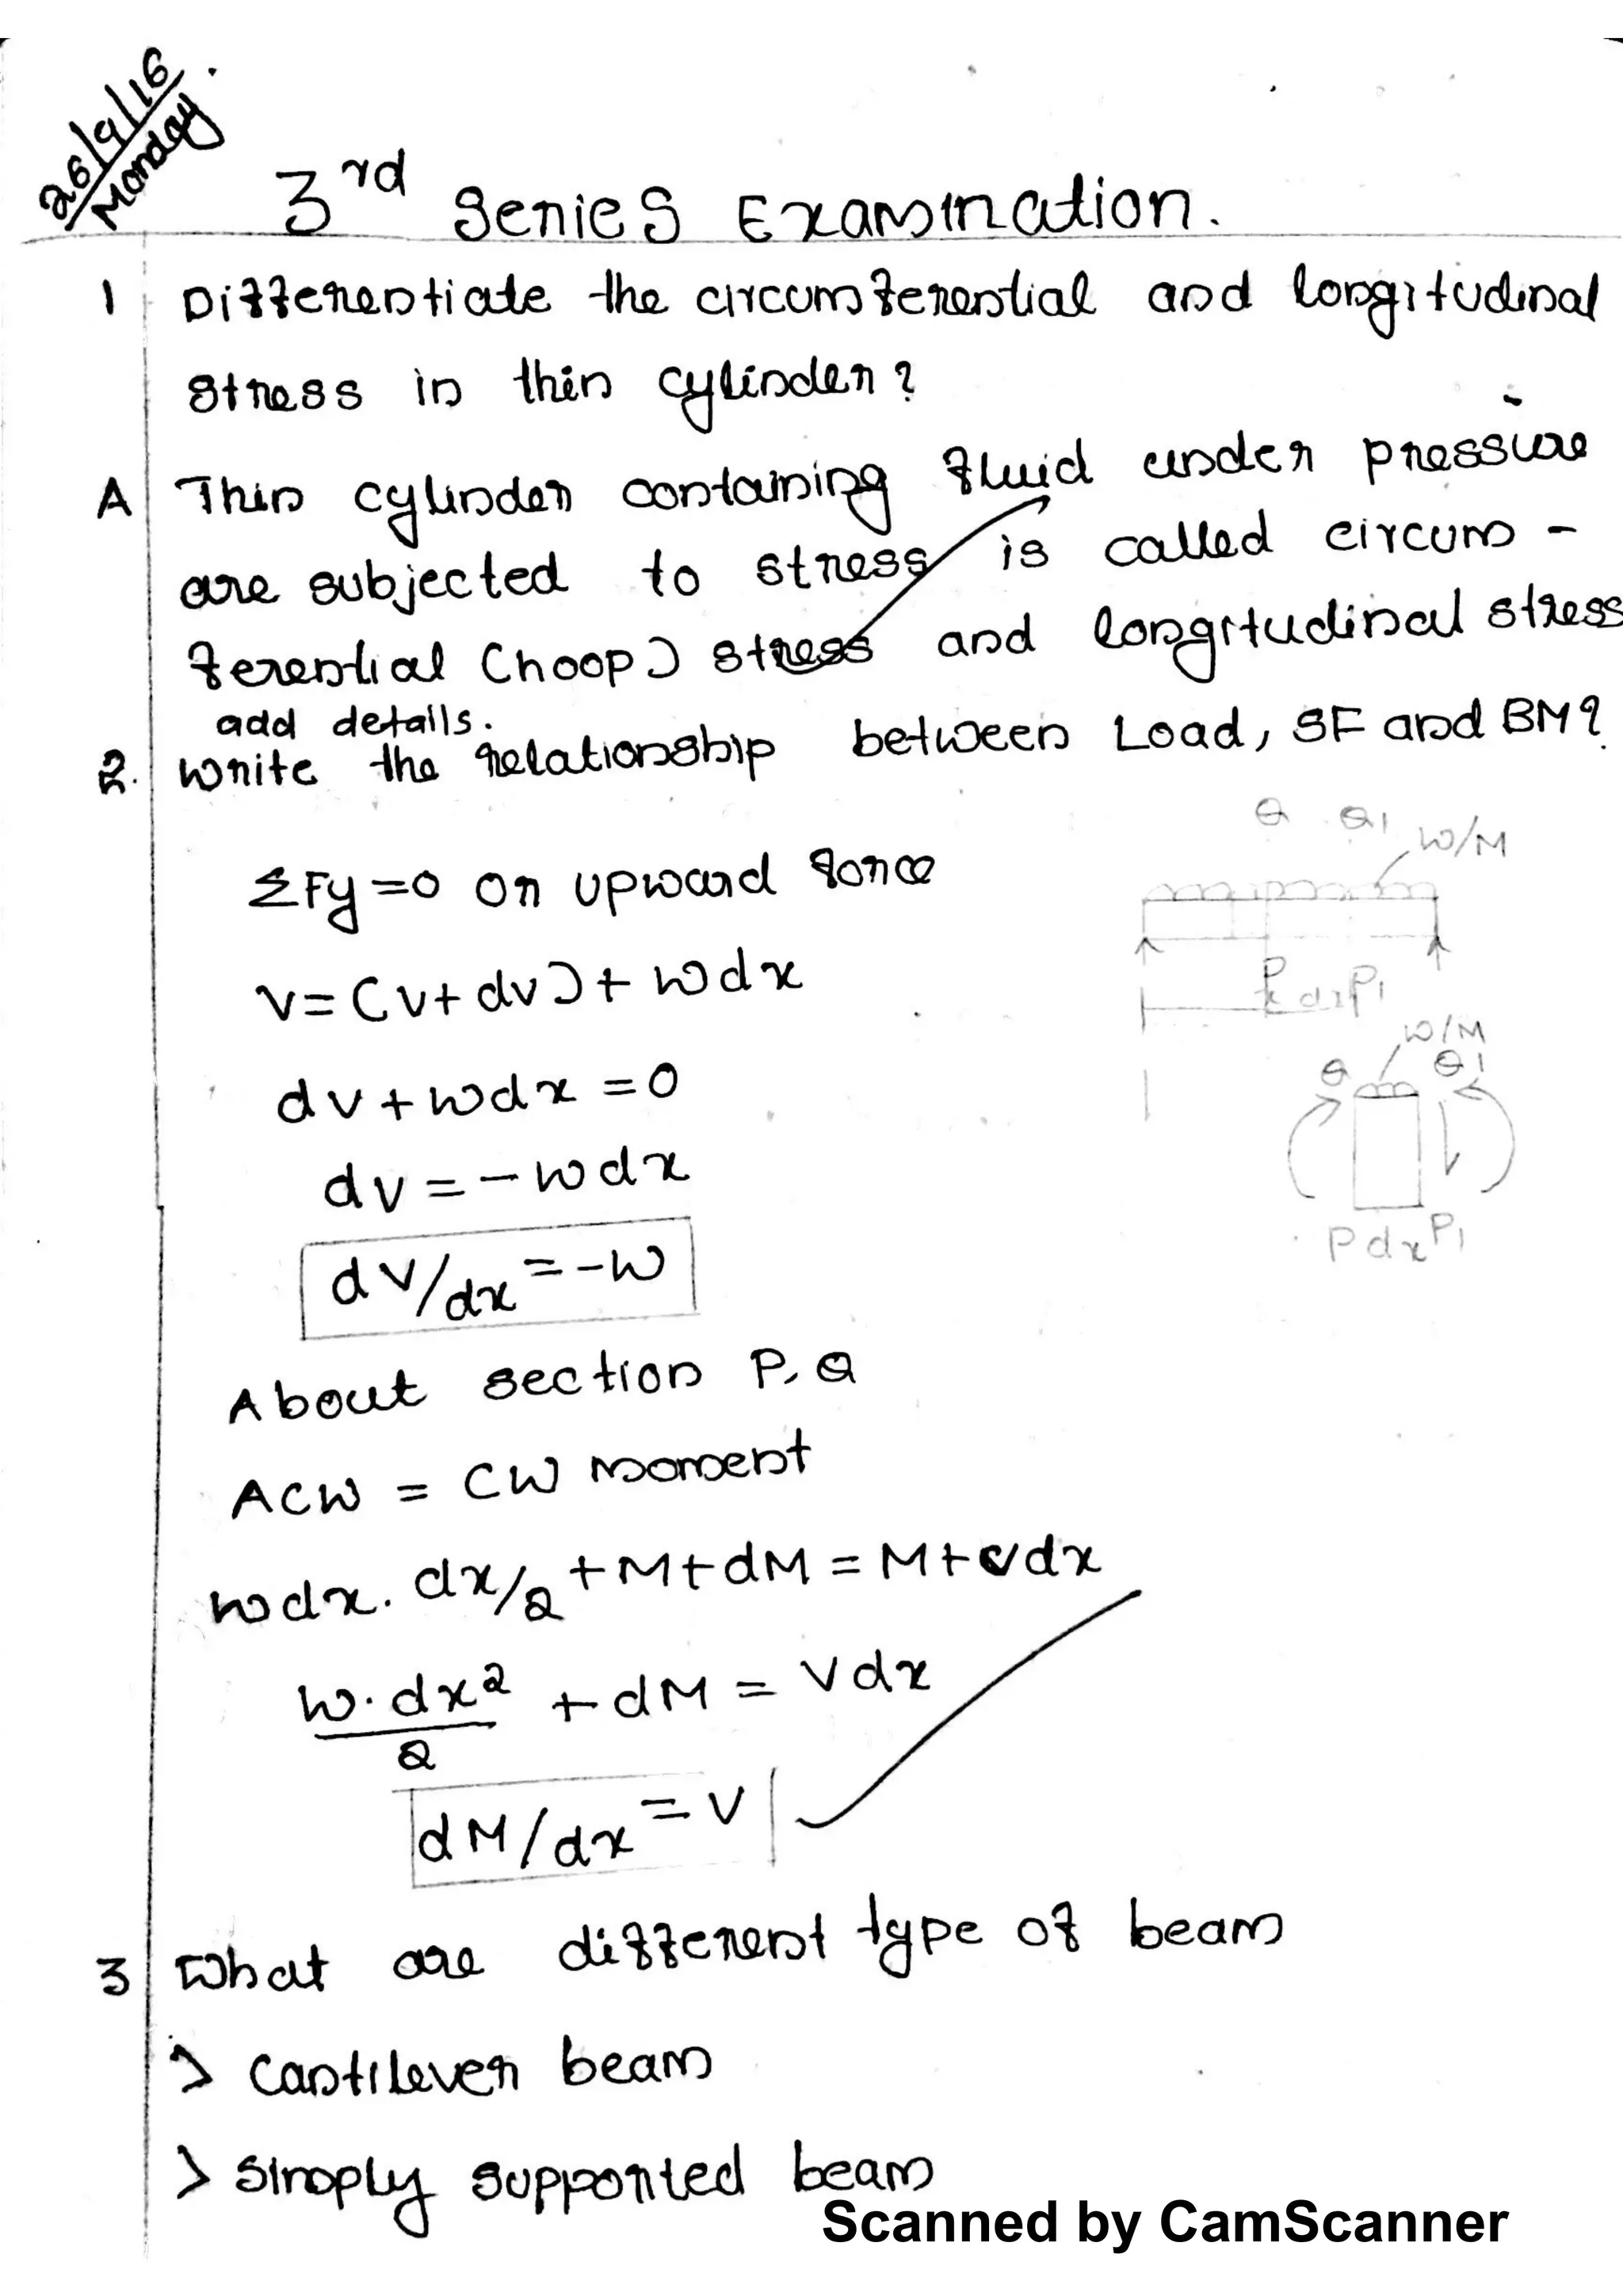 26/9/16
Monday
3rd Series Examination.
1 Differentiate the circumferential and longitudinal
stress in thin cylinder?
A Thin cylinder containing fluid under pressure
are subjected to stress is called circum-
ferential (hoop) stress and longitudinal stress
add details.
2. Write the relationship between Load, SF and BM?
Q Q1 W/M
ΣFy=0 on upward force
V=(V+dv)+Wdx
P dx P1
W/M
dv+wdx=0
Q Q1
dv=-wdx
P dx P1
dv/dx=-w
About section P, Q
ACW = CW moment
wdx. dx/2+M+dM=M+vdx
w.dx²/2 +dM=Vdx
dM/dx=V
3 What are different type of beam
> Cantilever beam
> Simply supported beam
Scanned by CamScanner